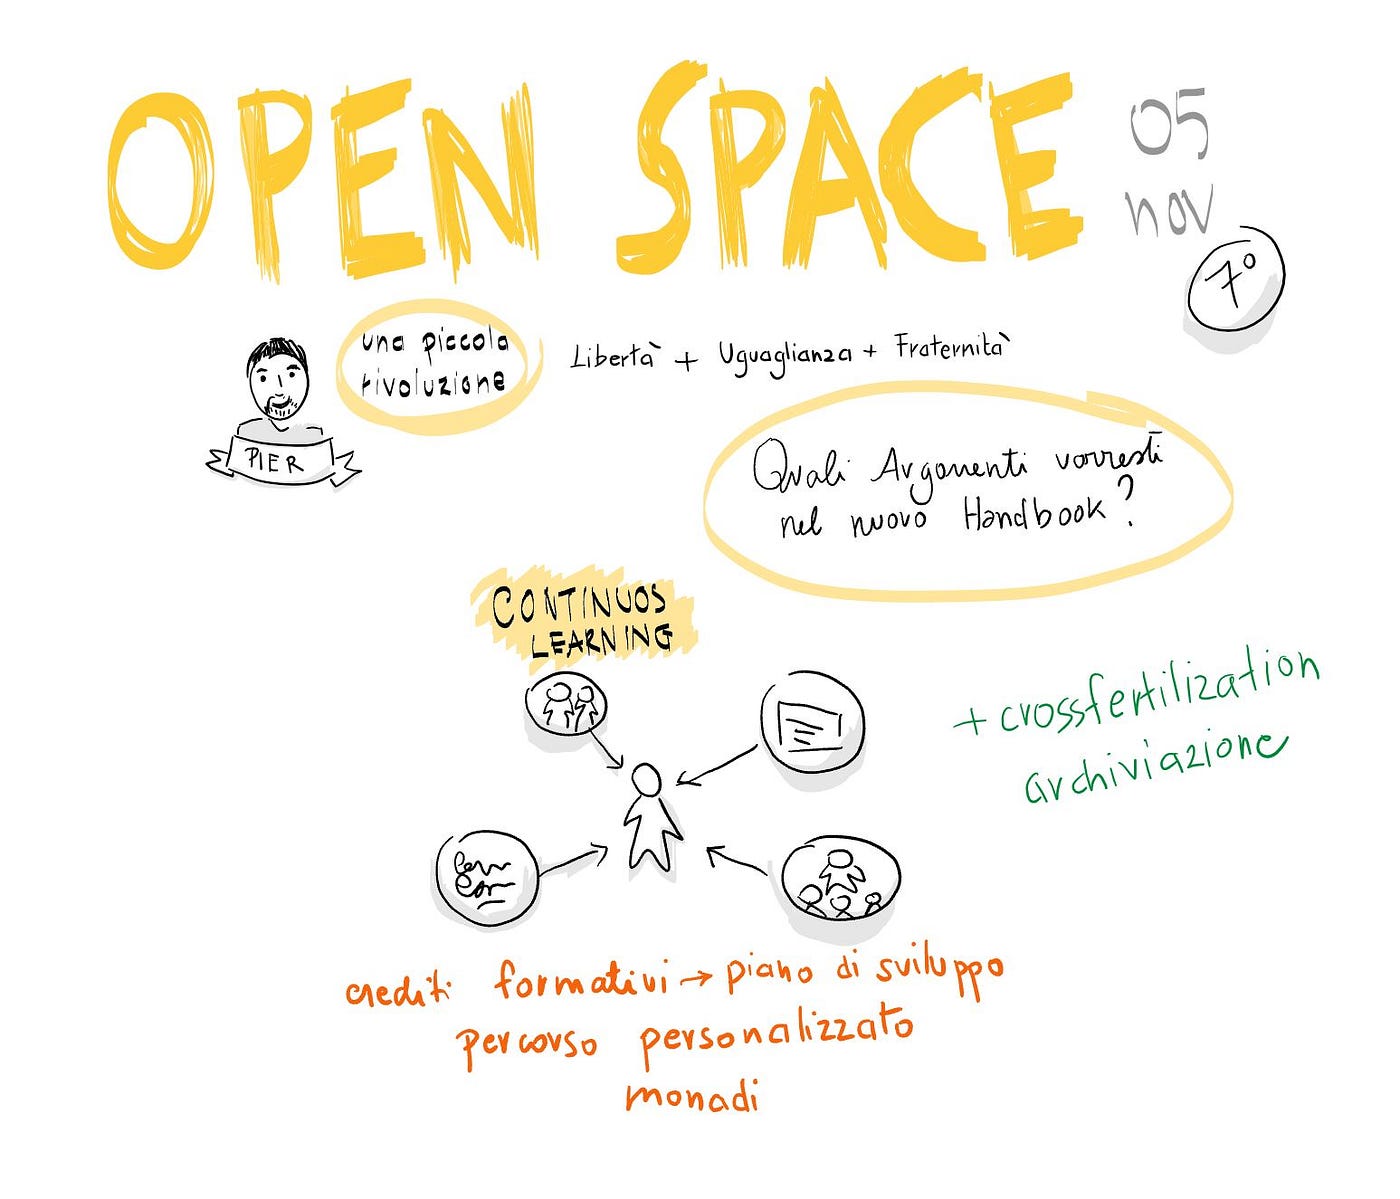 OPEN SPACE
05
nov
7°
una piccola
rivoluzione
Libertà + Uguaglianza + Fraternità
PIER
Quali Argomenti vorresti
nel nuovo Handbook?
CONTINUOS
LEARNING
+ crossfertilization
archiviazione
crediti formativi → piano di sviluppo
percorso personalizzato
monadi